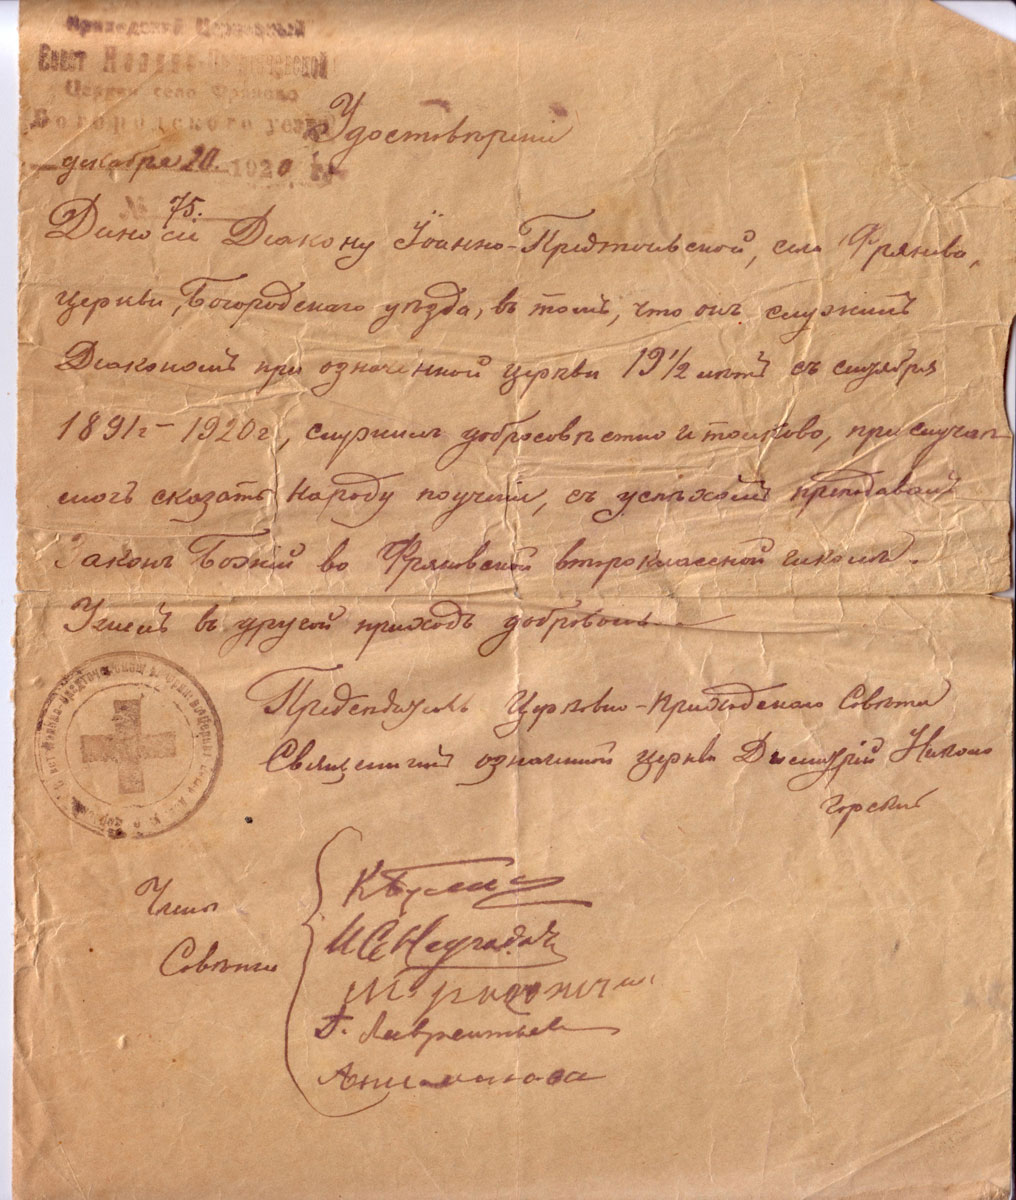 Приходский Церковный
Совет Иоанно-Предтечевской
Церкви село Фряново
Богородского уезда
декабря 20. 1920 г.
№ 75.
Удостовѣреніе
Дано сіе Діакону Іоанно-Предтечевской, села Фрянова,
церкви, Богородскаго уѣзда, въ томъ, что онъ служилъ
Діакономъ при означенной церкви 19 1/2 лѣтъ съ
1891 г – 1920 г, служилъ добросовѣстно и толково, при случаѣ
могъ сказать народу поученіе, съ успѣхомъ преподавалъ
Законъ Божій во Фряновской второклассной школѣ.
въ другой приходъ добровольно
Предсѣдатель Церковно-приходскаго Совѣта
Священникъ означенной церкви Димитрій Никологорскій
Члены
Совѣта
Г. Лаврентьев